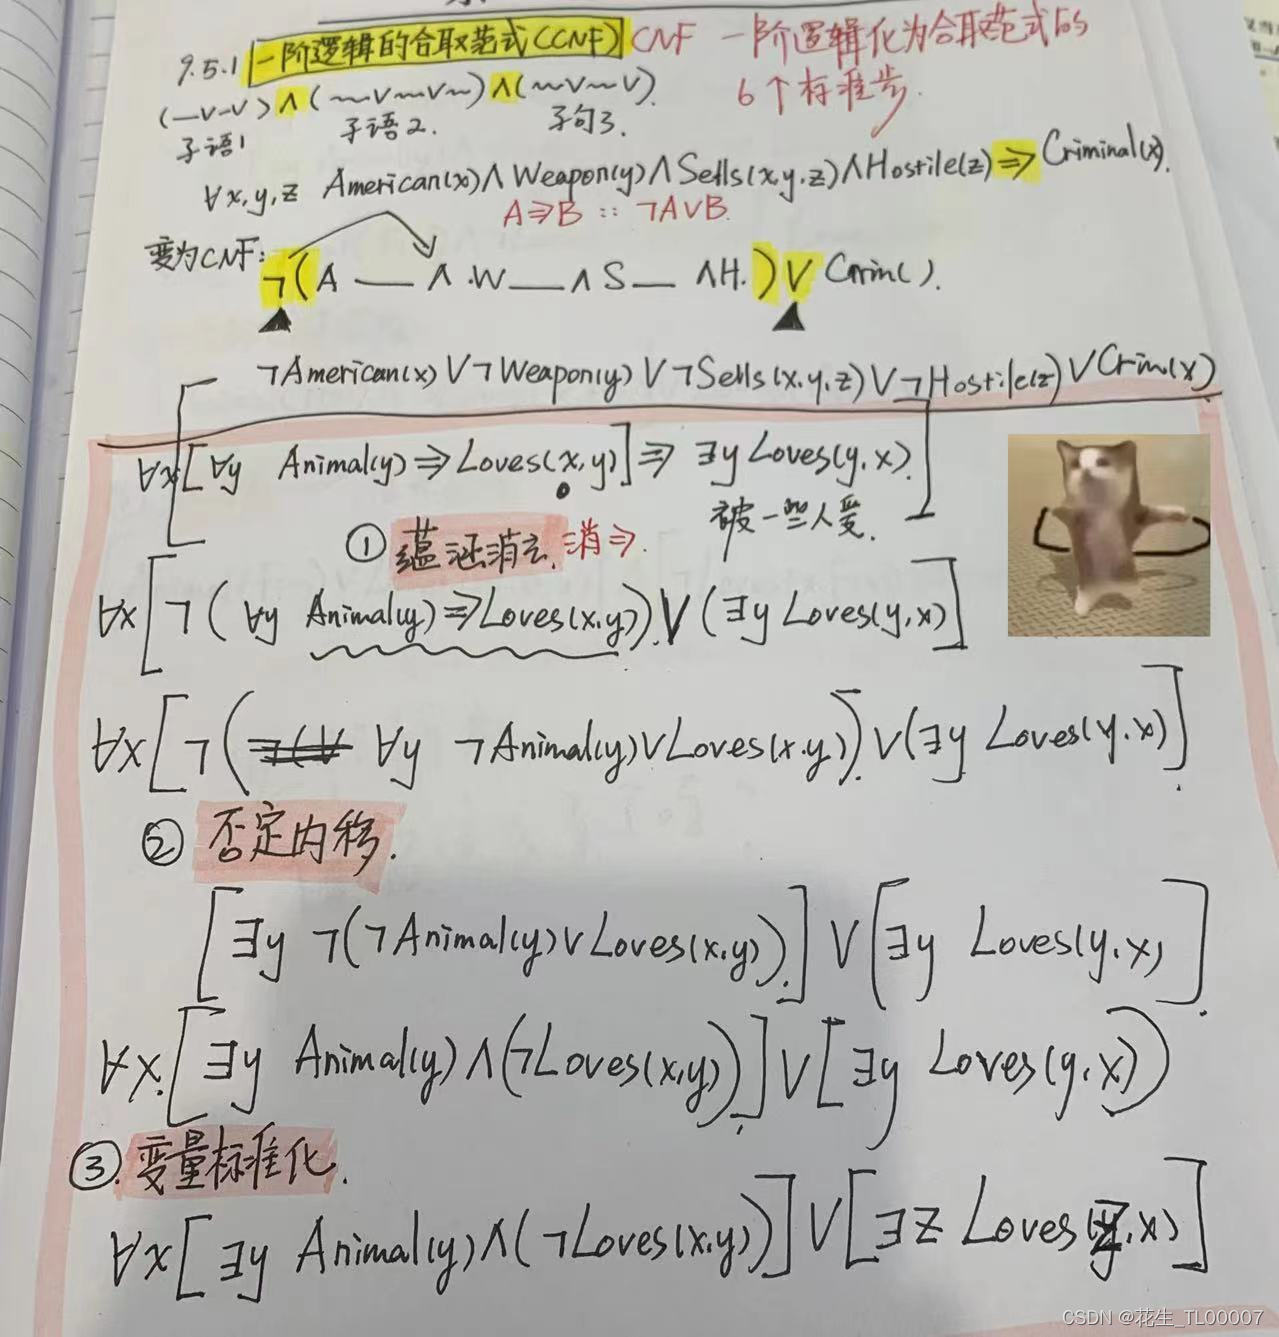 9.5.1 一阶逻辑的合取范式(CNF) CNF 一阶逻辑化为合取范式的
6个标准步
(—∨—∨) ∧ (~∨~∨~) ∧ (~∨~∨).
子语1 子语2. 子句3.
∀x,y,z American(x)∧Weapon(y)∧Sells(x,y,z)∧Hostile(z)⇒Criminal(x).
A⇒B :: ¬A∨B.
变为CNF: ¬(A — ∧.W — ∧ S — ∧H.)∨ Crim().
¬American(x)∨¬Weapon(y)∨¬Sells(x,y,z)∨¬Hostile(z)∨Crim(x)
∀x[∀y Animal(y)⇒Loves(x,y)]⇒ ∃y Loves(y,x).
被一些人爱.
① 蕴涵消去. 消⇒.
∀x[¬(∀y Animal(y)⇒Loves(x,y))∨(∃y Loves(y,x)]
∀x[¬(∀y ¬Animal(y)∨Loves(x,y))∨(∃y Loves(y,x)].
② 否定内移.
[∃y ¬(¬Animal(y)∨Loves(x,y))]∨[∃y Loves(y,x)].
∀x.[∃y Animal(y)∧(¬Loves(x,y))]∨[∃y Loves(y,x))
③.变量标准化.
∀x[∃y Animal(y)∧(¬Loves(x,y))]∨[∃z Loves(z,x)]
CSDN @花生_TL00007